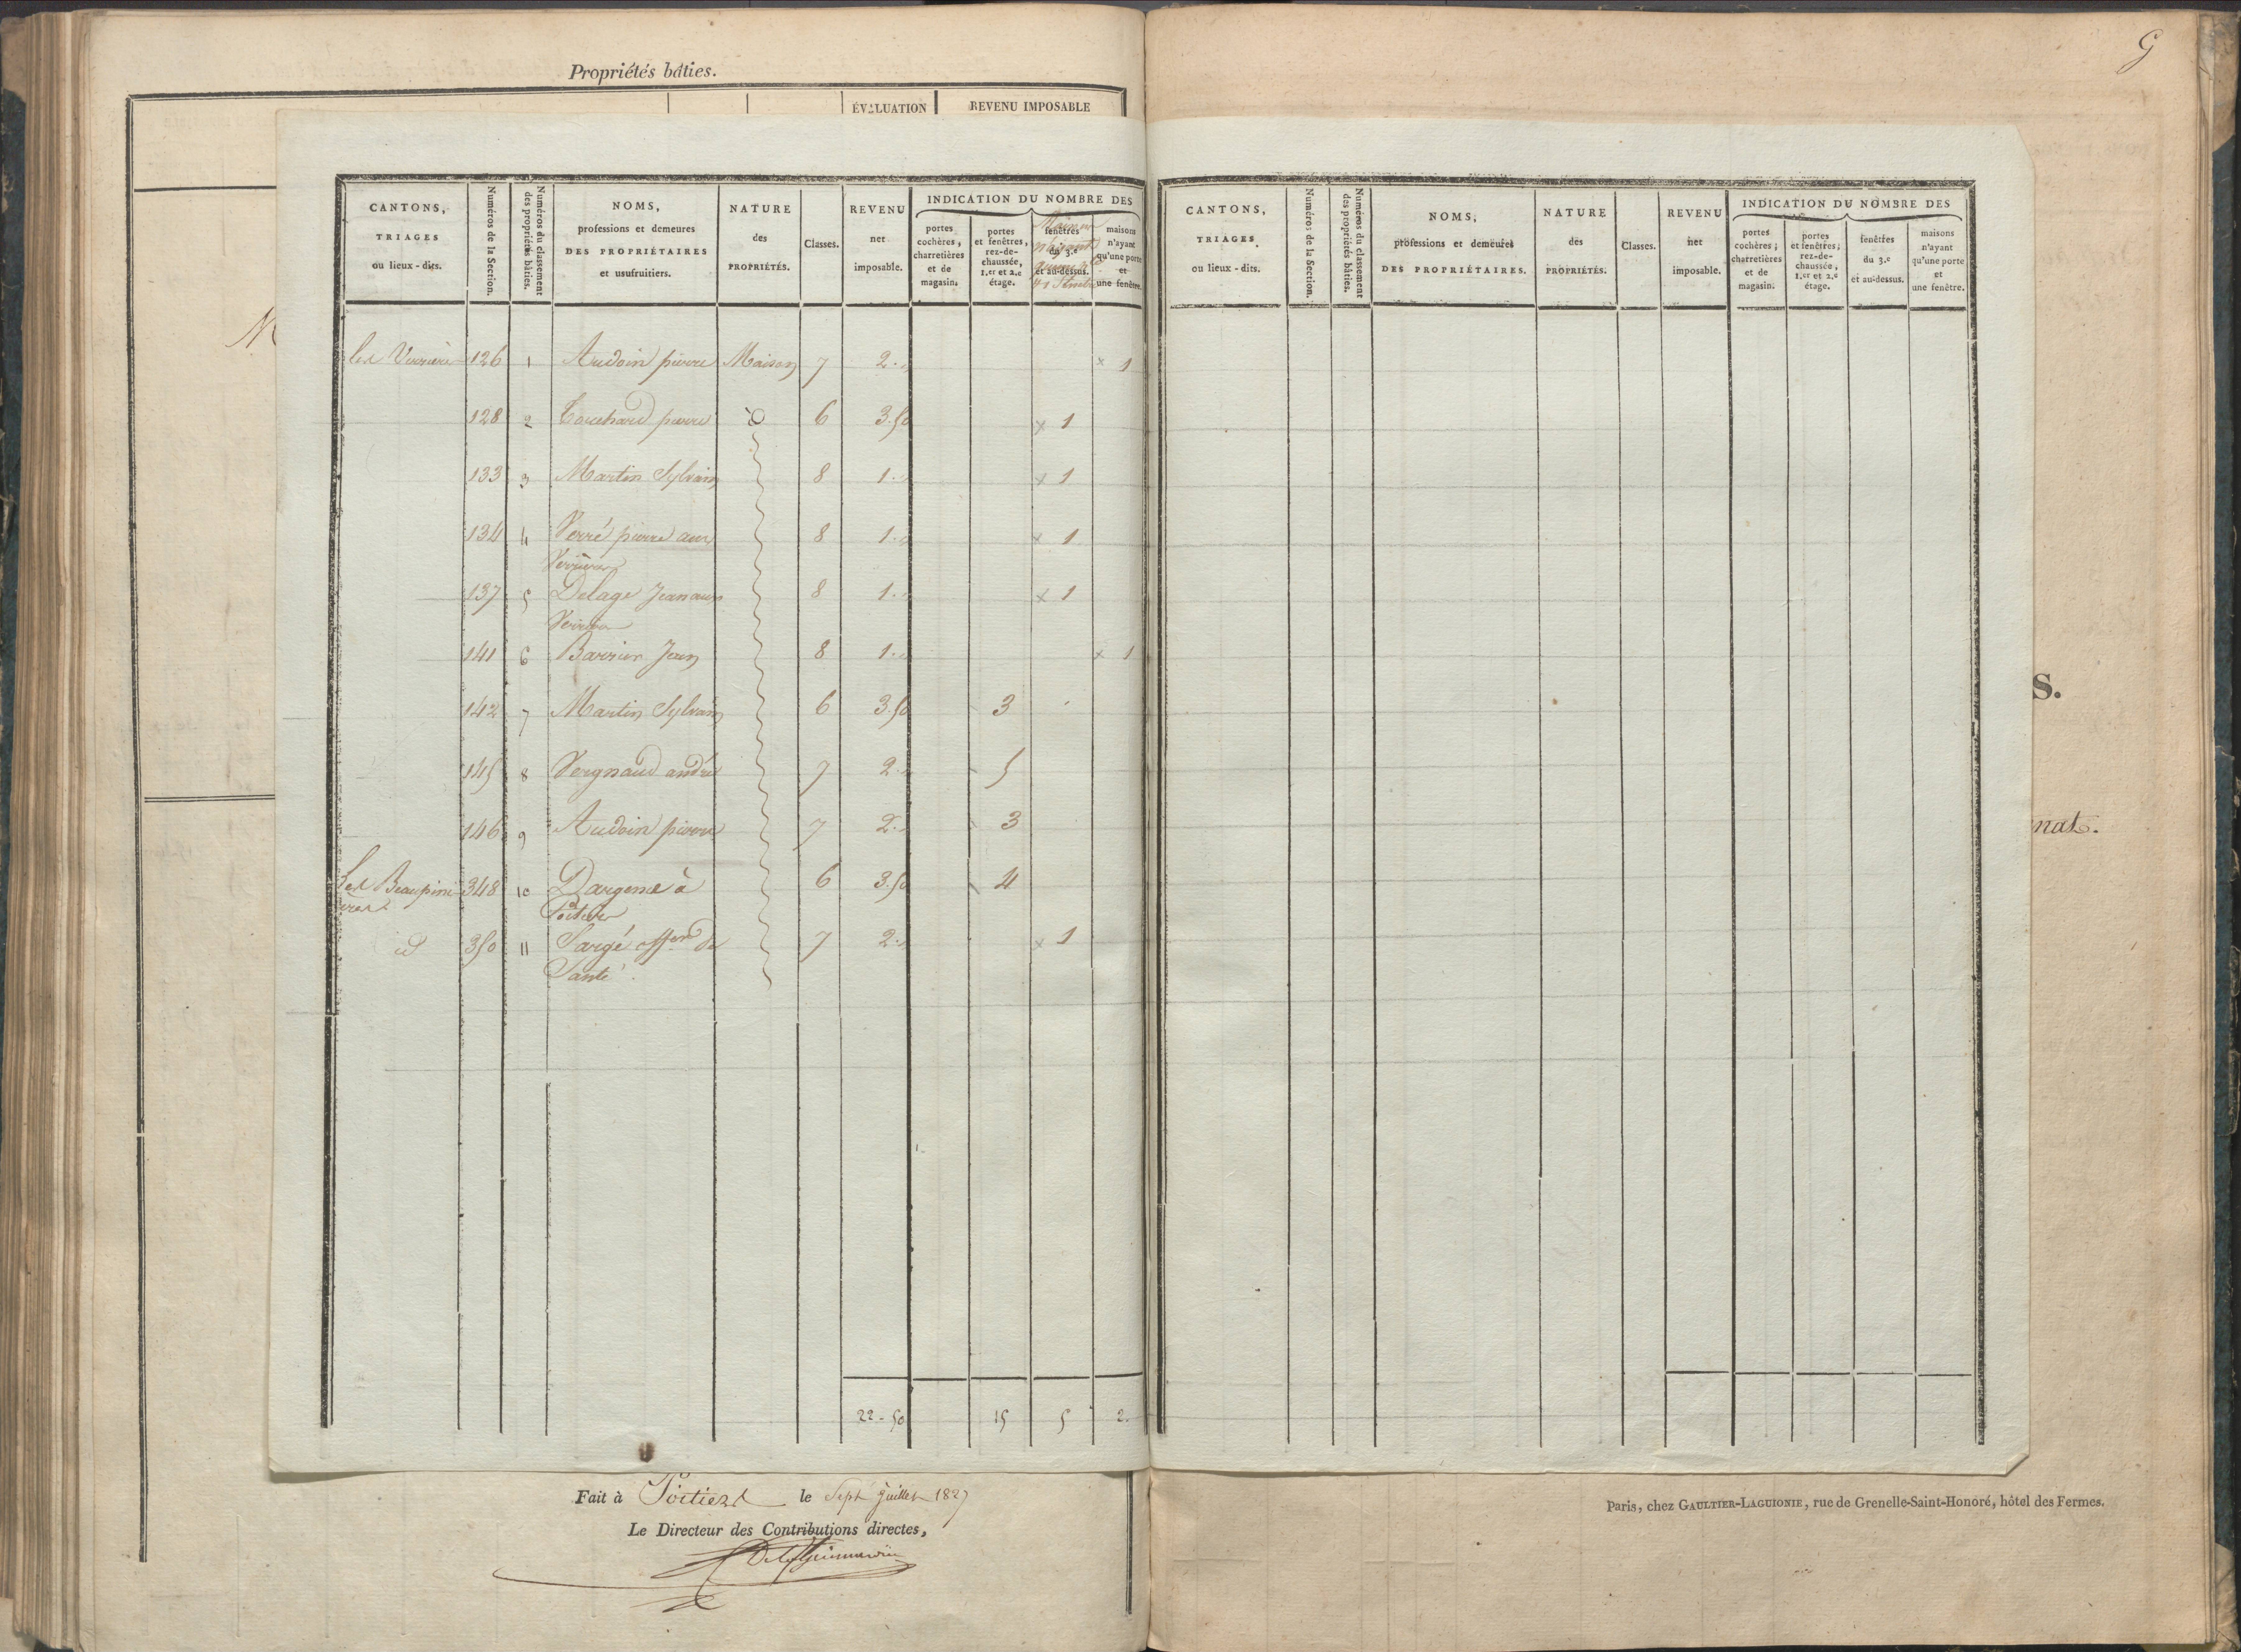 Propriétés bâties.
ÉVALUATION REVENU IMPOSABLE
G
CANTONS,
TRIAGES
ou lieux-dits.
Numéros de la Section.
Numéros du classement
des propriétés bâties.
NOMS,
professions et demeures
DES PROPRIÉTAIRES
et usufruitiers.
NATURE
des
PROPRIÉTÉS.
Classes.
REVENU
net
imposable.
INDICATION DU NOMBRE DES
portes
cochères,
charretières
et de
magasin.
portes
et fenêtres,
rez-de-
chaussée,
1.er et 2.e
étage.
fenêtres
du 3.e
et au-dessus.
Maison
n'ayant
maisons
n'ayant
qu'une porte
et
une fenêtre.
les Verrière 126 1 Audoin pierre Maison 7 2. " x 1
128 2 Touchard pierre d 6 3.50 x 1
133 3 Martin Sylvain 8 1. " x 1
134 4 Verré pierre aux 8 1. " x 1
Verrieres
137 5 Delage Jean aux 8 1. " x 1
141 6 Barrier Jean 8 1. " x 1
142 7 Martin Sylvain 6 3.50 3
145 8 Vergnaud andré 7 2. " 5
146 9 Audoin pierre 7 2. " 3
Les Beaupini 348 10 Dargence à 6 3.50 4
eres Poitiers
id 350 11 Sargé offer de 7 2. " x 1
Santé.
22-50 15 5 2.
CANTONS,
TRIAGES
ou lieux-dits.
Numéros de la Section.
Numéros du classement
des propriétés bâties.
NOMS,
professions et demeures
DES PROPRIÉTAIRES.
NATURE
des
PROPRIÉTÉS.
Classes.
REVENU
net
imposable.
INDICATION DU NOMBRE DES
portes
cochères;
charretières
et de
magasin.
portes
et fenêtres;
rez-de-
chaussée,
1.er et 2.e
étage.
fenêtres
du 3.e
et au-dessus.
maisons
n'ayant
qu'une porte
et
une fenêtre.
S.
nat.
Fait à Poitiers le Sept juillet 1827
Le Directeur des Contributions directes,
Paris, chez GAULTIER-LAGUIONIE, rue de Grenelle-Saint-Honoré, hôtel des Fermes.